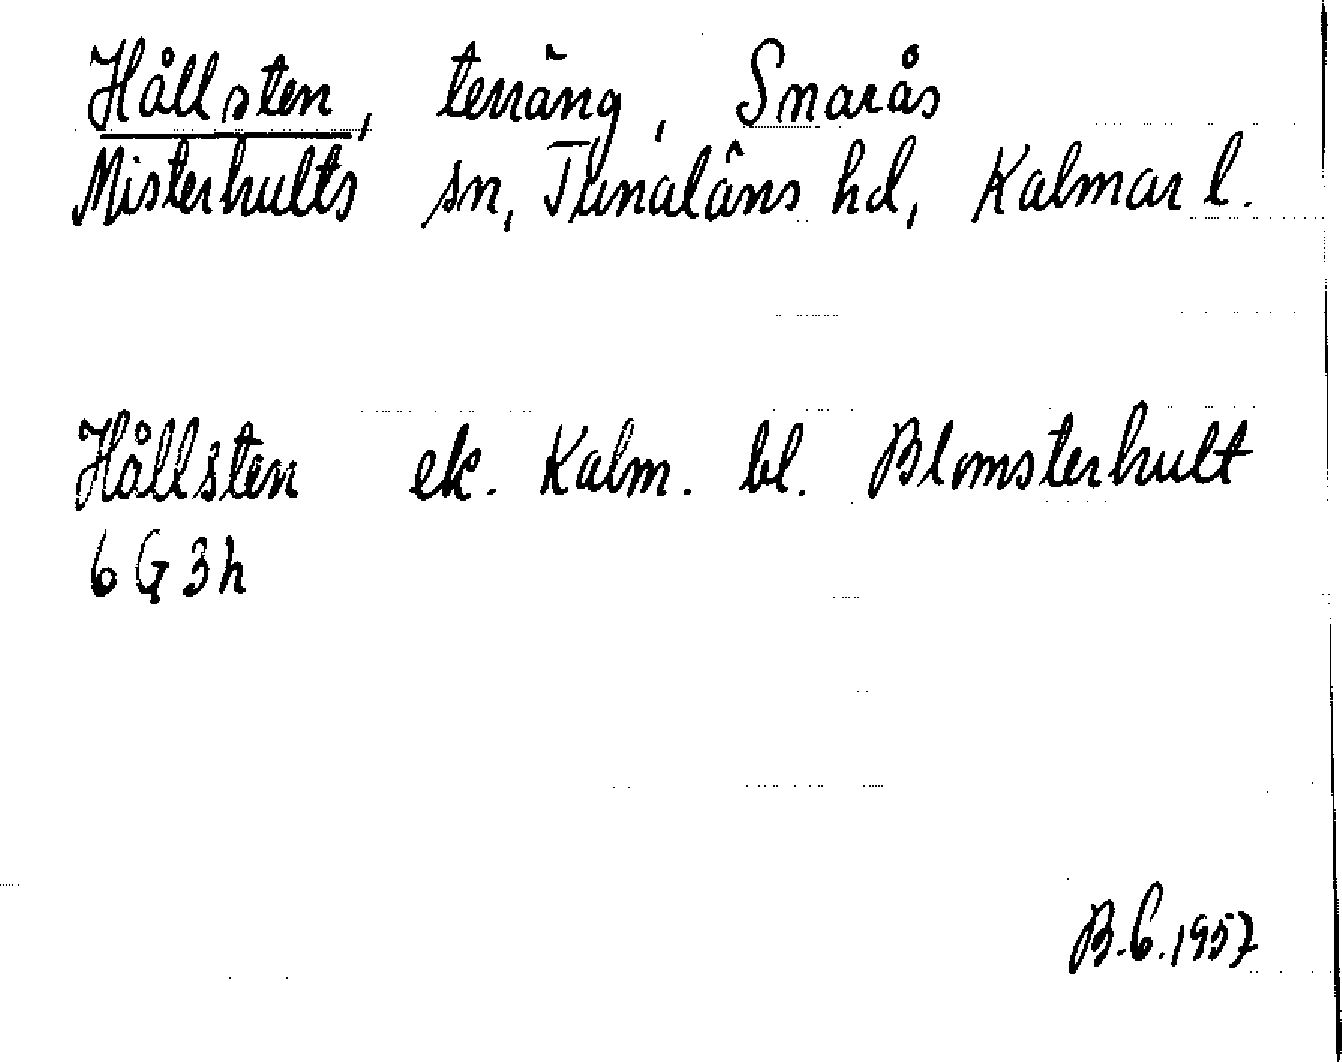 Hållsten, terräng, Snarås
Misterhults sn, Tunaläns hd, Kalmar l.
Hållsten ek. Kalm. bl. Blomsterhult
6 G 3h
B.C.1957